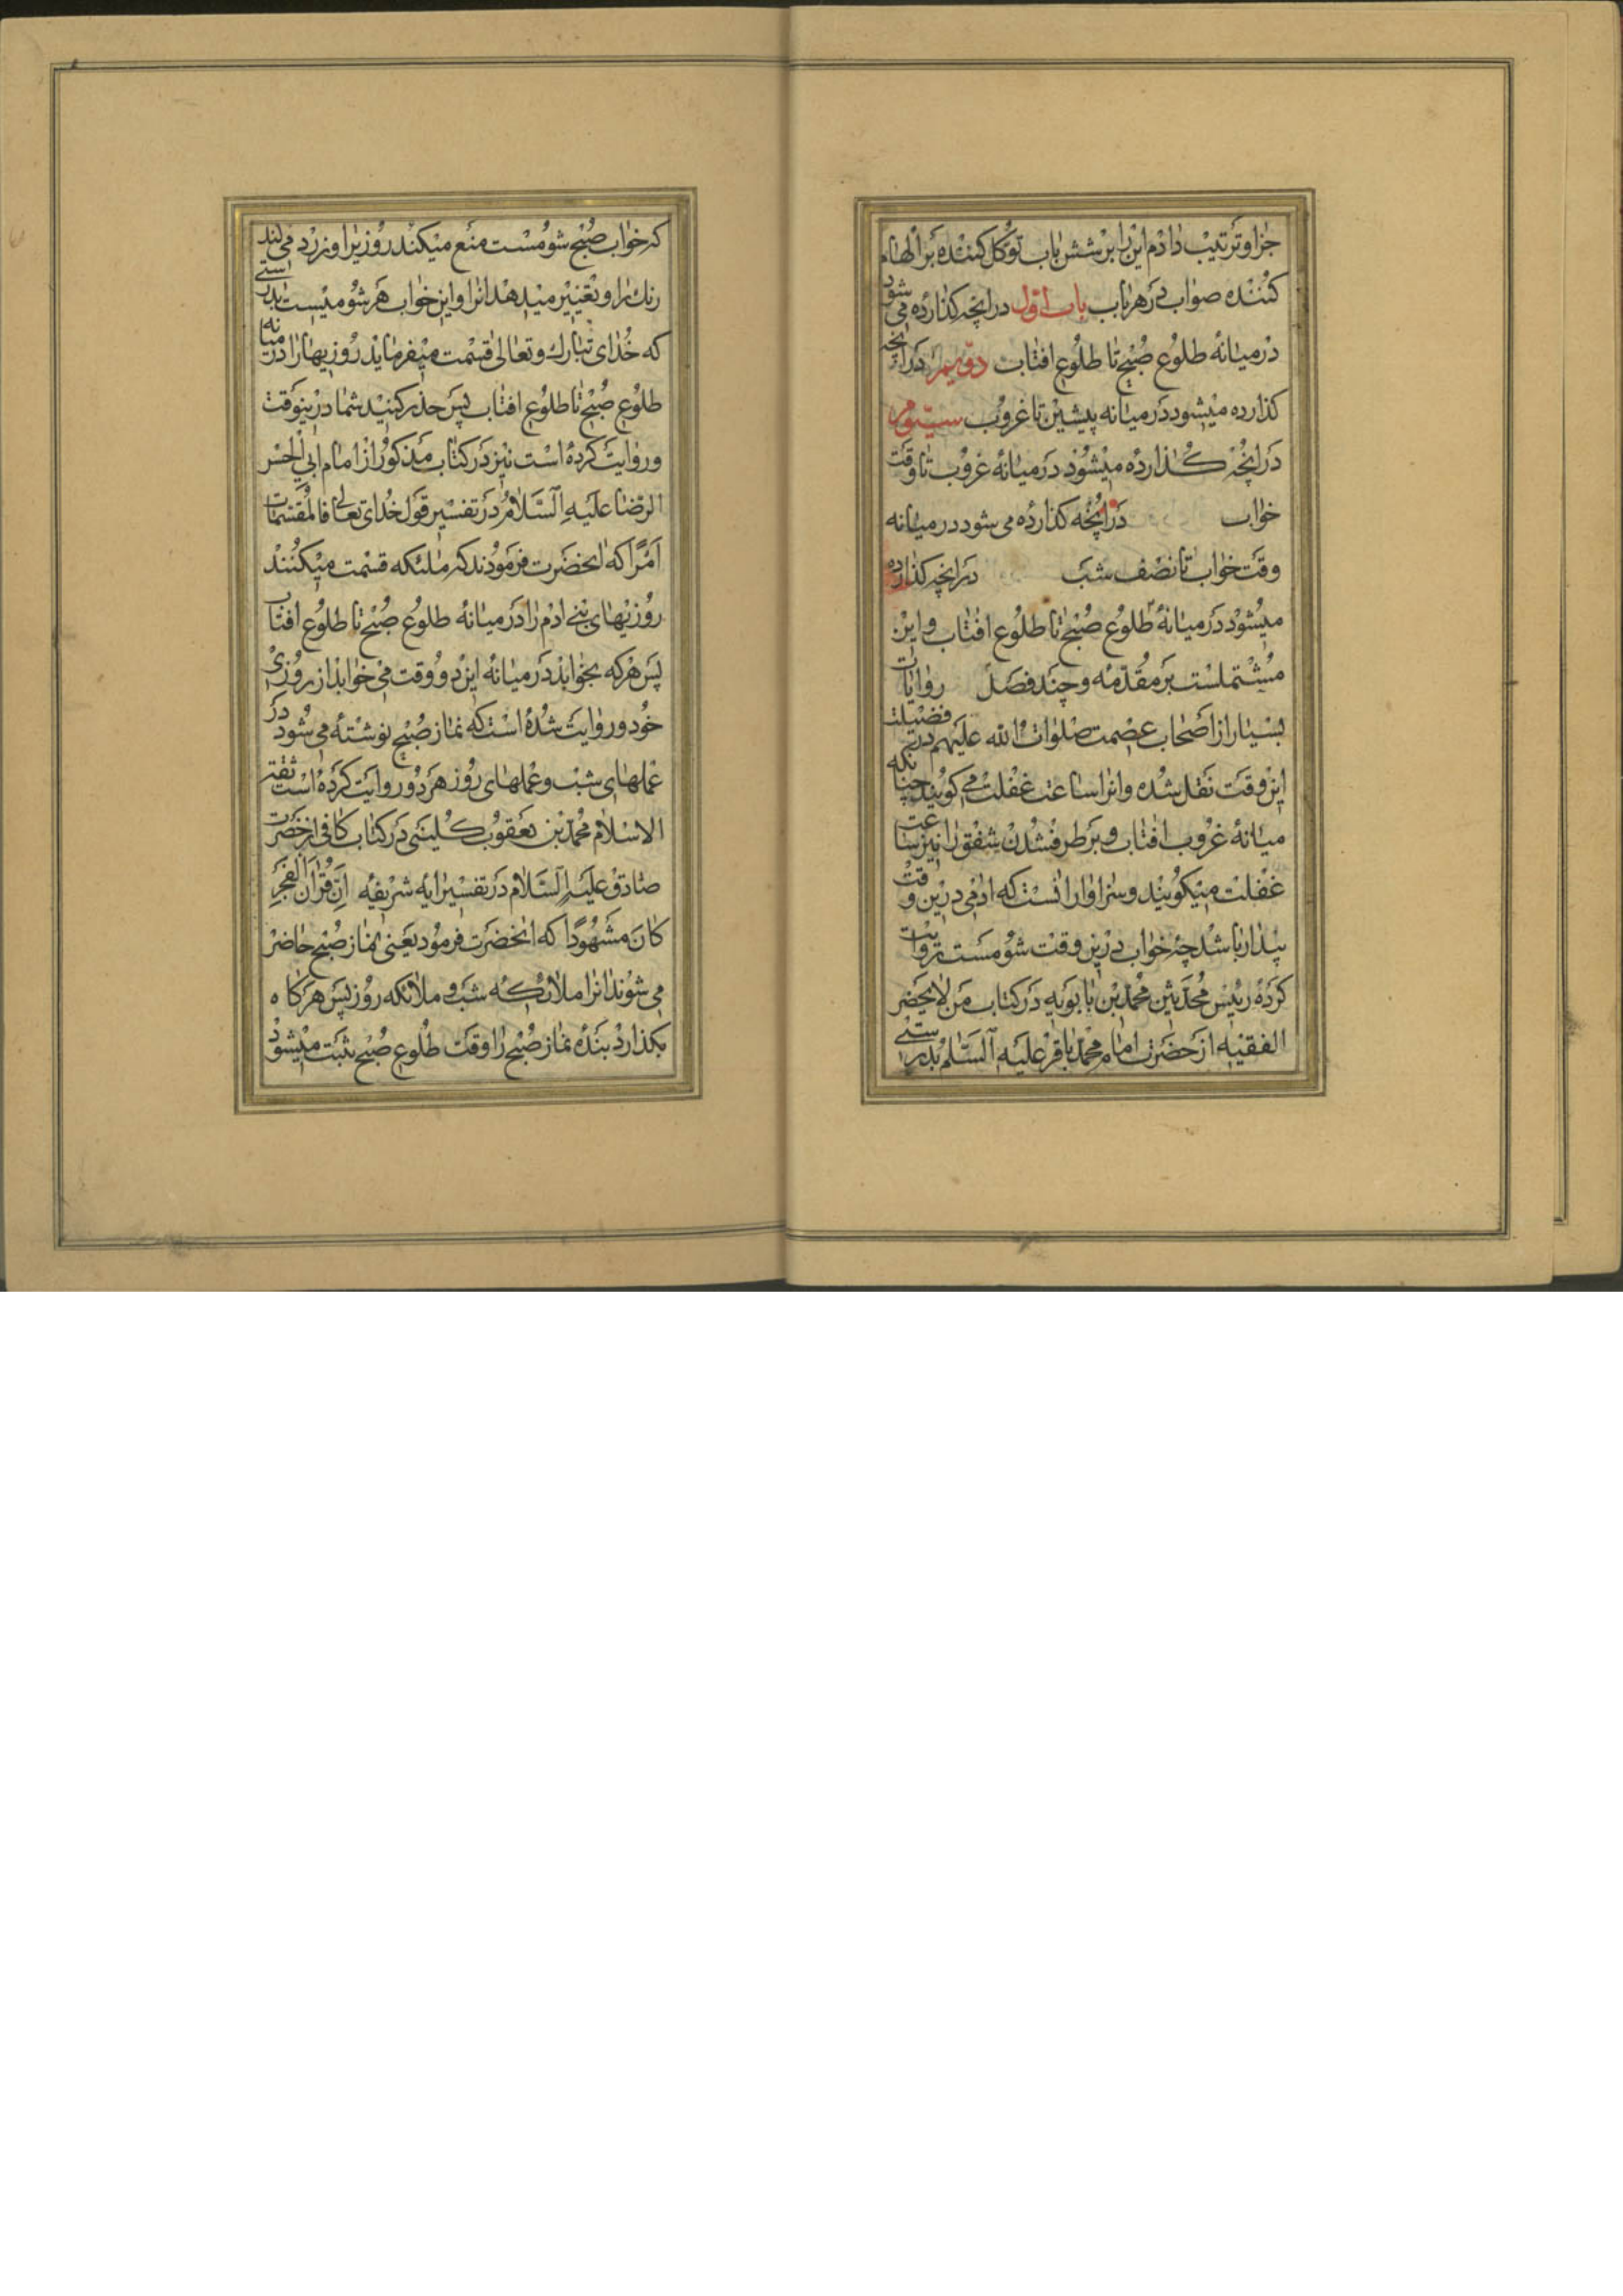 جزا و ترتیب دادم این را بر شش باب توکل کننده بر الهام
کننده صواب در هر باب باب اول در انچه کذارده می شود
در میانهٔ طلوع صبح تا طلوع افتاب دویم در انچه
کذارده میشود در میانه پیشین تا غروب سیوم
در انچه کذارده میشود در میانهٔ غروب تا وقت
خواب در انچه کذارده می شود در میانه
وقت خواب تا نصف شب در انچه کذارده
میشود در میانهٔ طلوع صبح تا طلوع افتاب و این
مشتملست بر مقدمه و چند فصل روایات
بسیار از اصحاب عصمت صلوات الله علیهم در فضیلت
این وقت نقل شده و انرا ساعت غفلت می کویند چنانکه
میانهٔ غروب افتاب و برطرف شدن شفق را نیز ساعت
غفلت میکویند و سزاوار انست که ادمی درین وقت
بیدار باشد چه خواب درین وقت شومست روایت
کرده رئیس محدثین محمد بن بابویه در کتاب من لا یحضر
الفقیه از حضرت امام محمد باقر علیه السلم بدرستی
که خواب صبح شومست منع میکند روزیرا و زرد می کند
رنك را و تغییر میدهد انرا و این خواب هر شومیست بدرستی
که خدای تبارك و تعالی قسمت میفرماید روزیها را در میانه
طلوع صبح تا طلوع افتاب پس حذر کنید شما درینوقت
و روایت کرده است نیز در کتاب مذکور از امام ابی الحسن
الرضا علیه السلام در تفسیر قول خدای تعالی فالمقسمات
امرا که انحضرت فرمودند که ملئکه قسمت میکنند
روزیهای بنی ادم را در میانهٔ طلوع صبح تا طلوع افتاب
پس هرکه بخوابد در میانهٔ این دو وقت می خوابد از روزی
خود و روایت شده است که نماز صبح نوشته می شود در
عملهای شب و عملهای روز هر دو روایت کرده است ثقة
الاسلام محمد بن یعقوب کلینی در کتاب کافی از حضرت
صادق علیه السلام در تفسیر ایه شریفه ان قران الفجر
کان مشهودا که انحضرت فرمود یعنی نماز صبح حاضر
می شوند انرا ملائکه شب و ملائکه روز پس هرکاه
بکذارد بنده نماز صبح را وقت طلوع صبح ثبت میشود